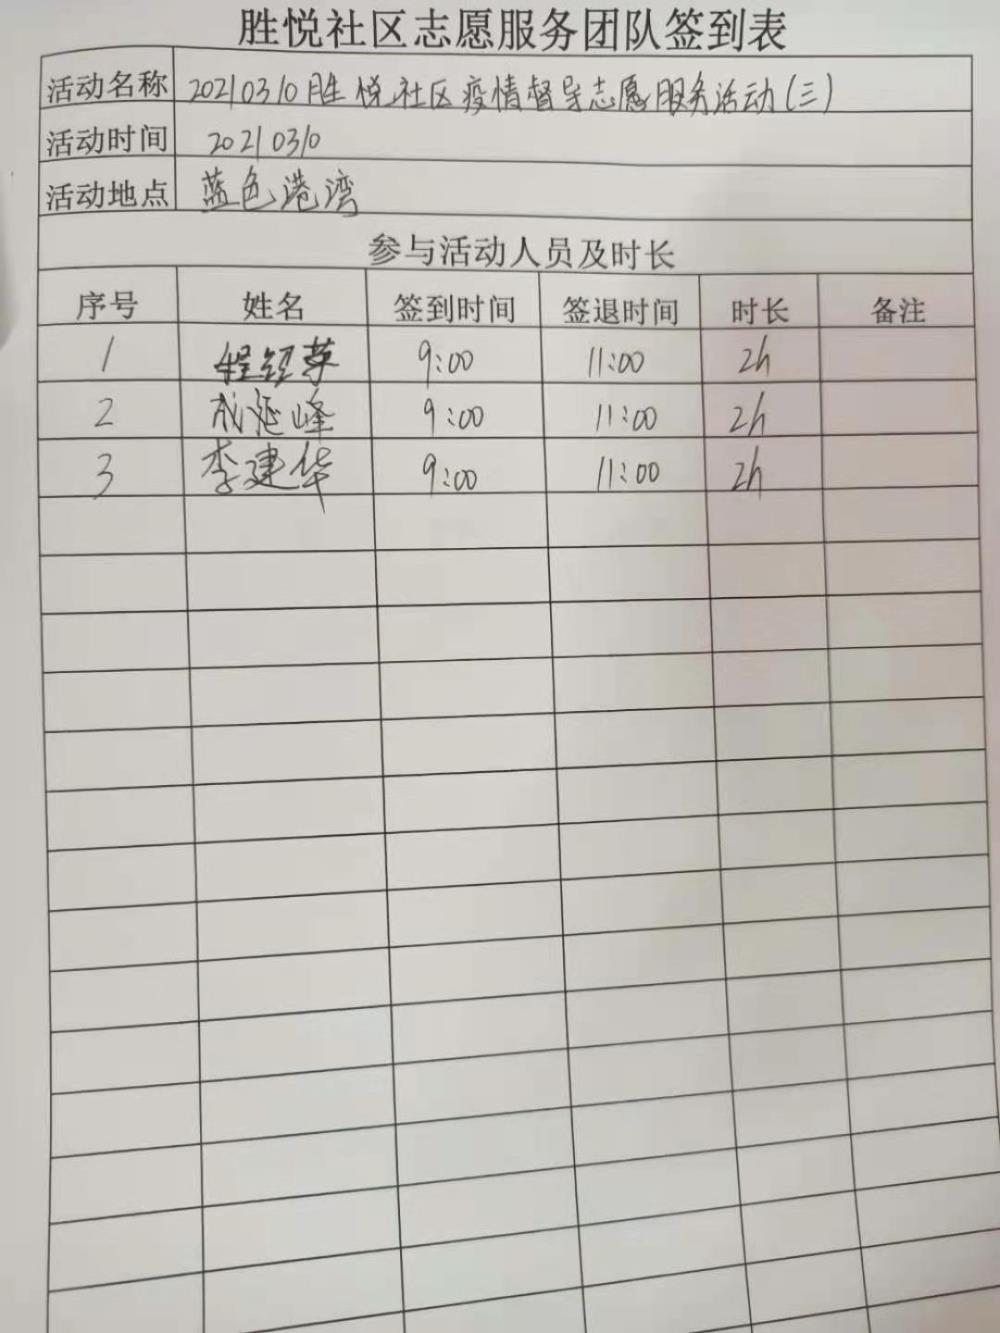 胜悦社区志愿服务团队签到表
活动名称 20210310胜悦社区疫情督导志愿服务活动(三)
活动时间 20210310
活动地点 蓝色港湾
参与活动人员及时长
序号 姓名 签到时间 签退时间 时长 备注
1 程 9:00 11:00 2h
2 成延峰 9:00 11:00 2h
3 李建华 9:00 11:00 2h